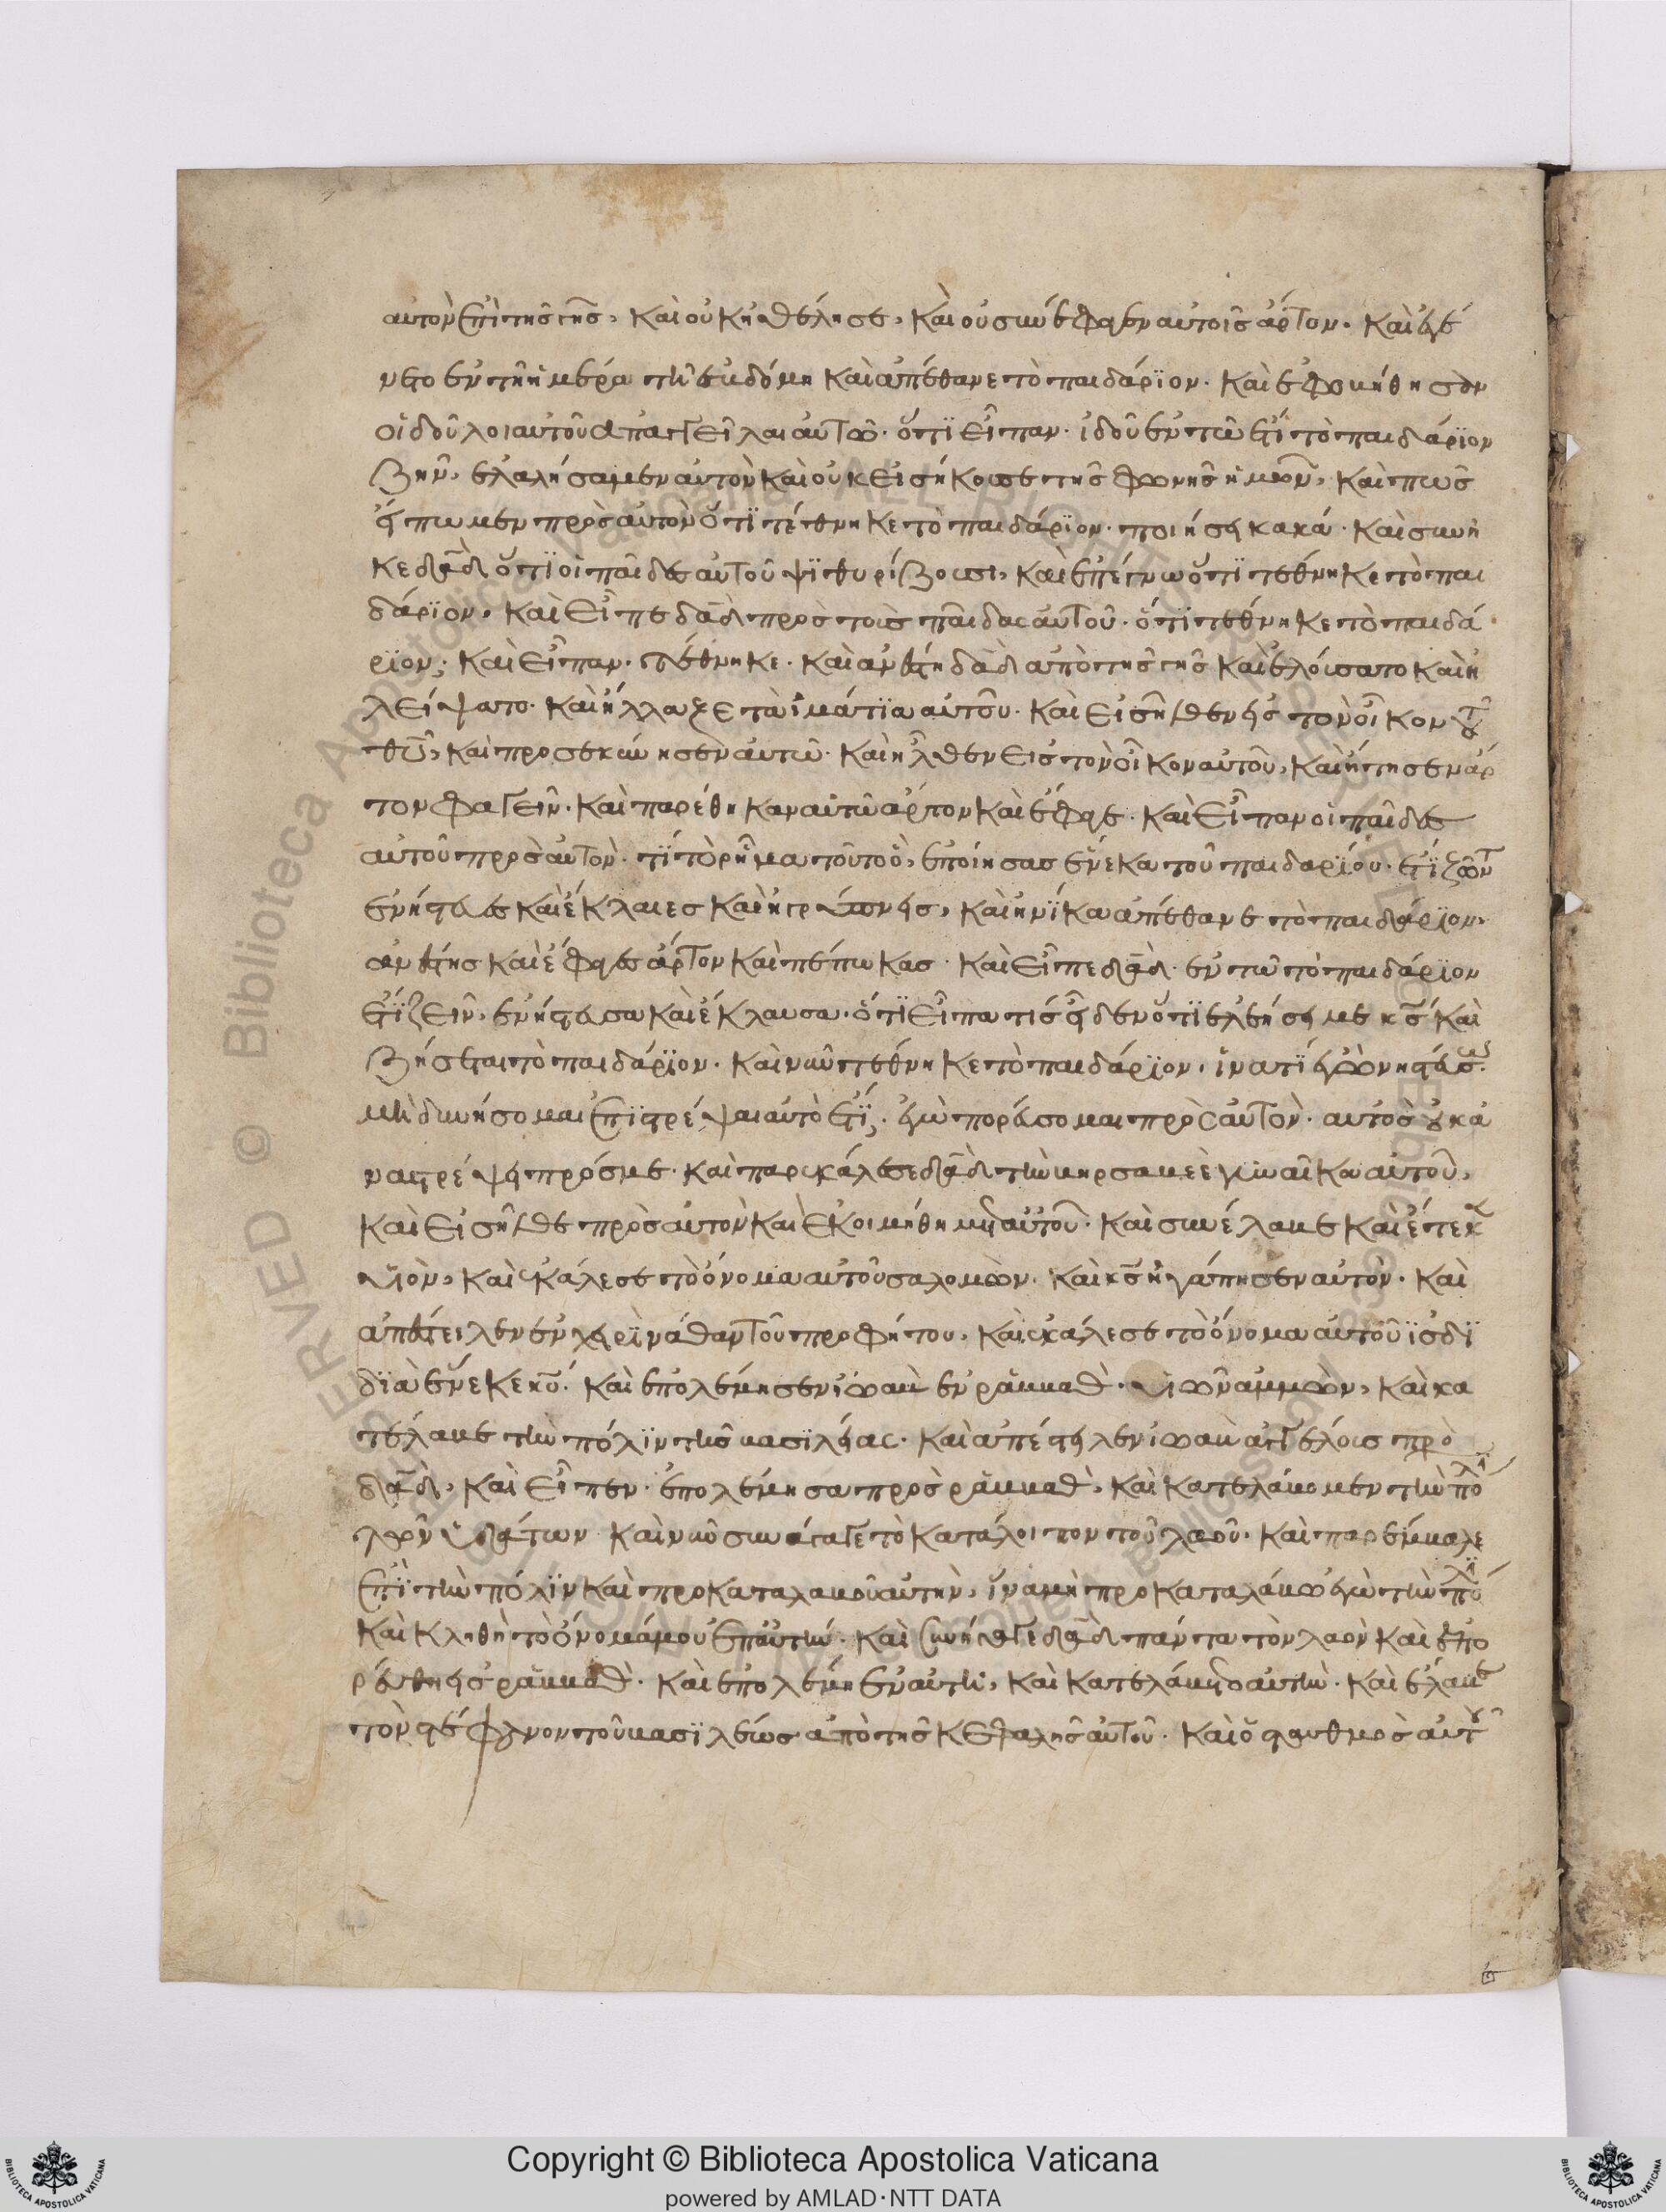 αὐτὸν ἐπὶ τῆς γῆς, καὶ οὐκ ἠθέλησε, καὶ οὐ συνέφαγεν αὐτοῖς ἄρτον. καὶ ἐγέ
νετο ἐν τῇ ἡμέρᾳ τῇ ἑβδόμῃ καὶ ἀπέθανε τὸ παιδάριον. καὶ ἐφοβήθησαν
οἱ δοῦλοι αὐτοῦ ἀπαγγεῖλαι αὐτῷ. ὅτι εἶπαν. ἰδοὺ ἐν τῷ ἔτι τὸ παιδάριον
ζῆν, ἐλαλήσαμεν αὐτὸν καὶ οὐκ εἰσήκουσε τῆς φωνῆς ἡμῶν, καὶ πῶς
εἴπωμεν πρὸς αὐτὸν ὅτι τέθνηκε τὸ παιδάριον. ποιήσει κακά. καὶ συνῆ
κε δαδ ὅτι οἱ παῖδες αὐτοῦ ψιθυρίζουσι, καὶ ἐπέγνω ὅτι τέθνηκε τὸ παι
δάριον, καὶ εἶπε δαδ πρὸς τοὺς παῖδας αὐτοῦ. ὅτι τέθνηκε τὸ παιδά
ριον; καὶ εἶπαν. τέθνηκε. καὶ ἀνέστη δαδ ἀπὸ τῆς γῆς καὶ ἐλούσατο καὶ ἠ
λείψατο. καὶ ἤλλαξε τὰ ἱμάτια αὐτοῦ. καὶ εἰσῆλθεν εἰς τὸν οἶκον τοῦ
θῦ, καὶ προσεκύνησεν αὐτῷ. καὶ ἦλθεν εἰς τὸν οἶκον αὐτοῦ, καὶ ᾔτησεν ἄρ
τον φαγεῖν. καὶ παρέθηκαν αὐτῷ ἄρτον καὶ ἔφαγε. καὶ εἶπαν οἱ παῖδες
αὐτοῦ πρὸς αὐτόν. τί τὸ ῥῆμα τοῦτο ὃ, ἐποίησας ἕνεκα τοῦ παιδαρίου. ἔτι ζῶντ
ἐνήστευες καὶ ἔκλαιες καὶ ἠγρύπνεις, καὶ ἡνίκα ἀπέθανε τὸ παιδάριον,
ἀνέστης καὶ ἔφαγες ἄρτον καὶ πέπωκας. καὶ εἶπε δαδ. ἐν τῷ τὸ παιδάριον
ἔτι ζεῖν, ἐνήστευσα καὶ ἔκλαυσα. ὅτι εἶπα τίς οἶδεν ὅτι ἐλεήσει με κς καὶ
ζήσεται τὸ παιδάριον. καὶ νῦν τέθνηκε τὸ παιδάριον, ἵνα τί ἐγὼ νηστεύω.
μὴ δυνήσομαι ἐπιστρέψαι αὐτὸ ἔτι; ἐγὼ πορεύσομαι πρὸς αὐτόν. αὐτὸς οὐκ ἀ
ναστρέψει πρός με. καὶ παρεκάλεσε δαδ τὴν βηρσαβεὲ γυναῖκα αὐτοῦ,
καὶ εἰσῆλθε πρὸς αὐτὴν καὶ ἐκοιμήθη μετ αὐτοῦ. καὶ συνέλαβε καὶ ἔτεκε
υἱόν, καὶ ἐκάλεσε τὸ ὄνομα αὐτοῦ σαλομών. καὶ κς ἠγάπησεν αὐτόν. καὶ
ἀπέστειλεν ἐν χειρὶ νάθαν τοῦ προφήτου, καὶ ἐκάλεσε τὸ ὄνομα αὐτοῦ ἰεδι
διὰ ἕνεκε κυ. καὶ ἐπολέμησεν ἰωαβ ἐν ῥαββαθ. υἱῶν ἀμμών, καὶ κα
τέλαβε τὴν πόλιν τῆς βασιλείας. καὶ ἀπέστειλεν ἰωαβ ἀγγέλους πρὸ
δαδ, καὶ εἶπεν. ἐπολέμησα πρὸς ῥαββαθ, καὶ κατελάβομεν τὴν πόλιν
τῶν ὑδάτων καὶ νῦν συνάγαγε τὸ κατάλοιπον τοῦ λαοῦ. καὶ παρέμβαλε
ἐπὶ τὴν πόλιν καὶ προκαταλαβοῦ αὐτήν, ἵνα μὴ προκαταλάβω ἐγὼ τὴν πόλι
καὶ κληθῇ τὸ ὄνομά μου ἐπ αὐτήν. καὶ συνήγαγε δαδ πάντα τὸν λαὸν καὶ ἐπο
ρεύθη εἰς ῥαββαθ. καὶ ἐπολέμη ἐν αὐτῇ, καὶ κατελάβετο αὐτήν. καὶ ἔλαβε
τὸν στέφανον τοῦ βασιλέως ἀπὸ τῆς κεφαλῆς αὐτοῦ. καὶ ὁ σταθμὸς αὐτοῦ